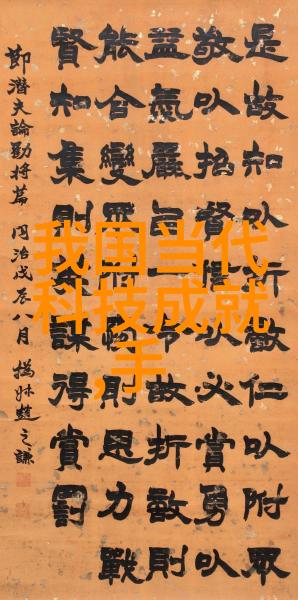 我国当代
科技成就
,手
是故知㕥折敵仁㕥附眾
敬㕥招㕥必賞勇㕥
益氣嚴一令故折敵則
能合變則思力戰
賢知集則謀得賞罰
節潛夫論勸將篇 同治戊辰八月 撝叔趙之謙